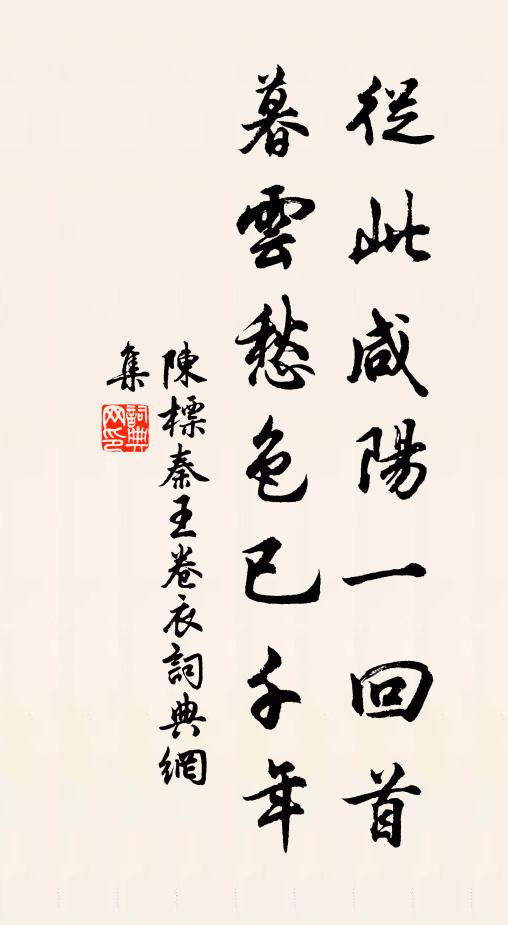 從此咸陽一回首
暮雲愁色已千年
陳標秦王卷衣詞典網
集
詞典网印